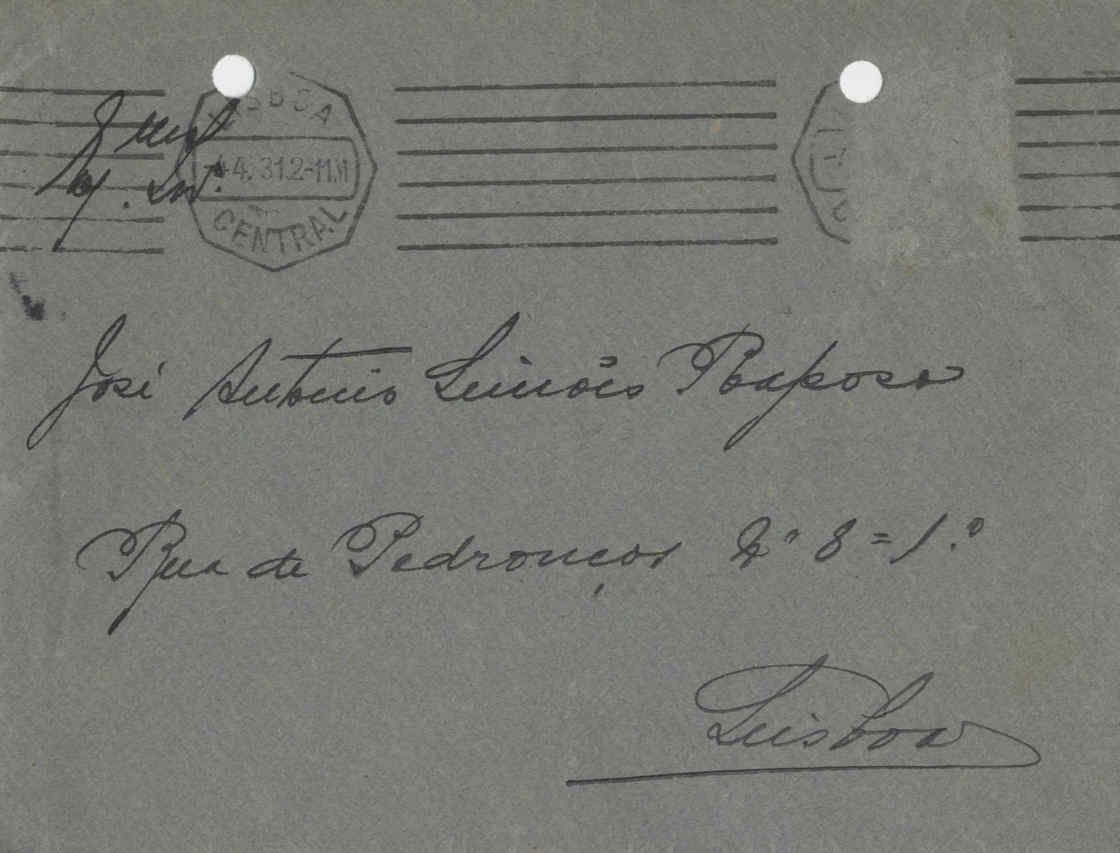 LISBOA
4.4.31.2-11.M
CENTRAL
José Antonio Simões Raposo
Rua de Pedrouços Nº 8=1.º
Lisboa